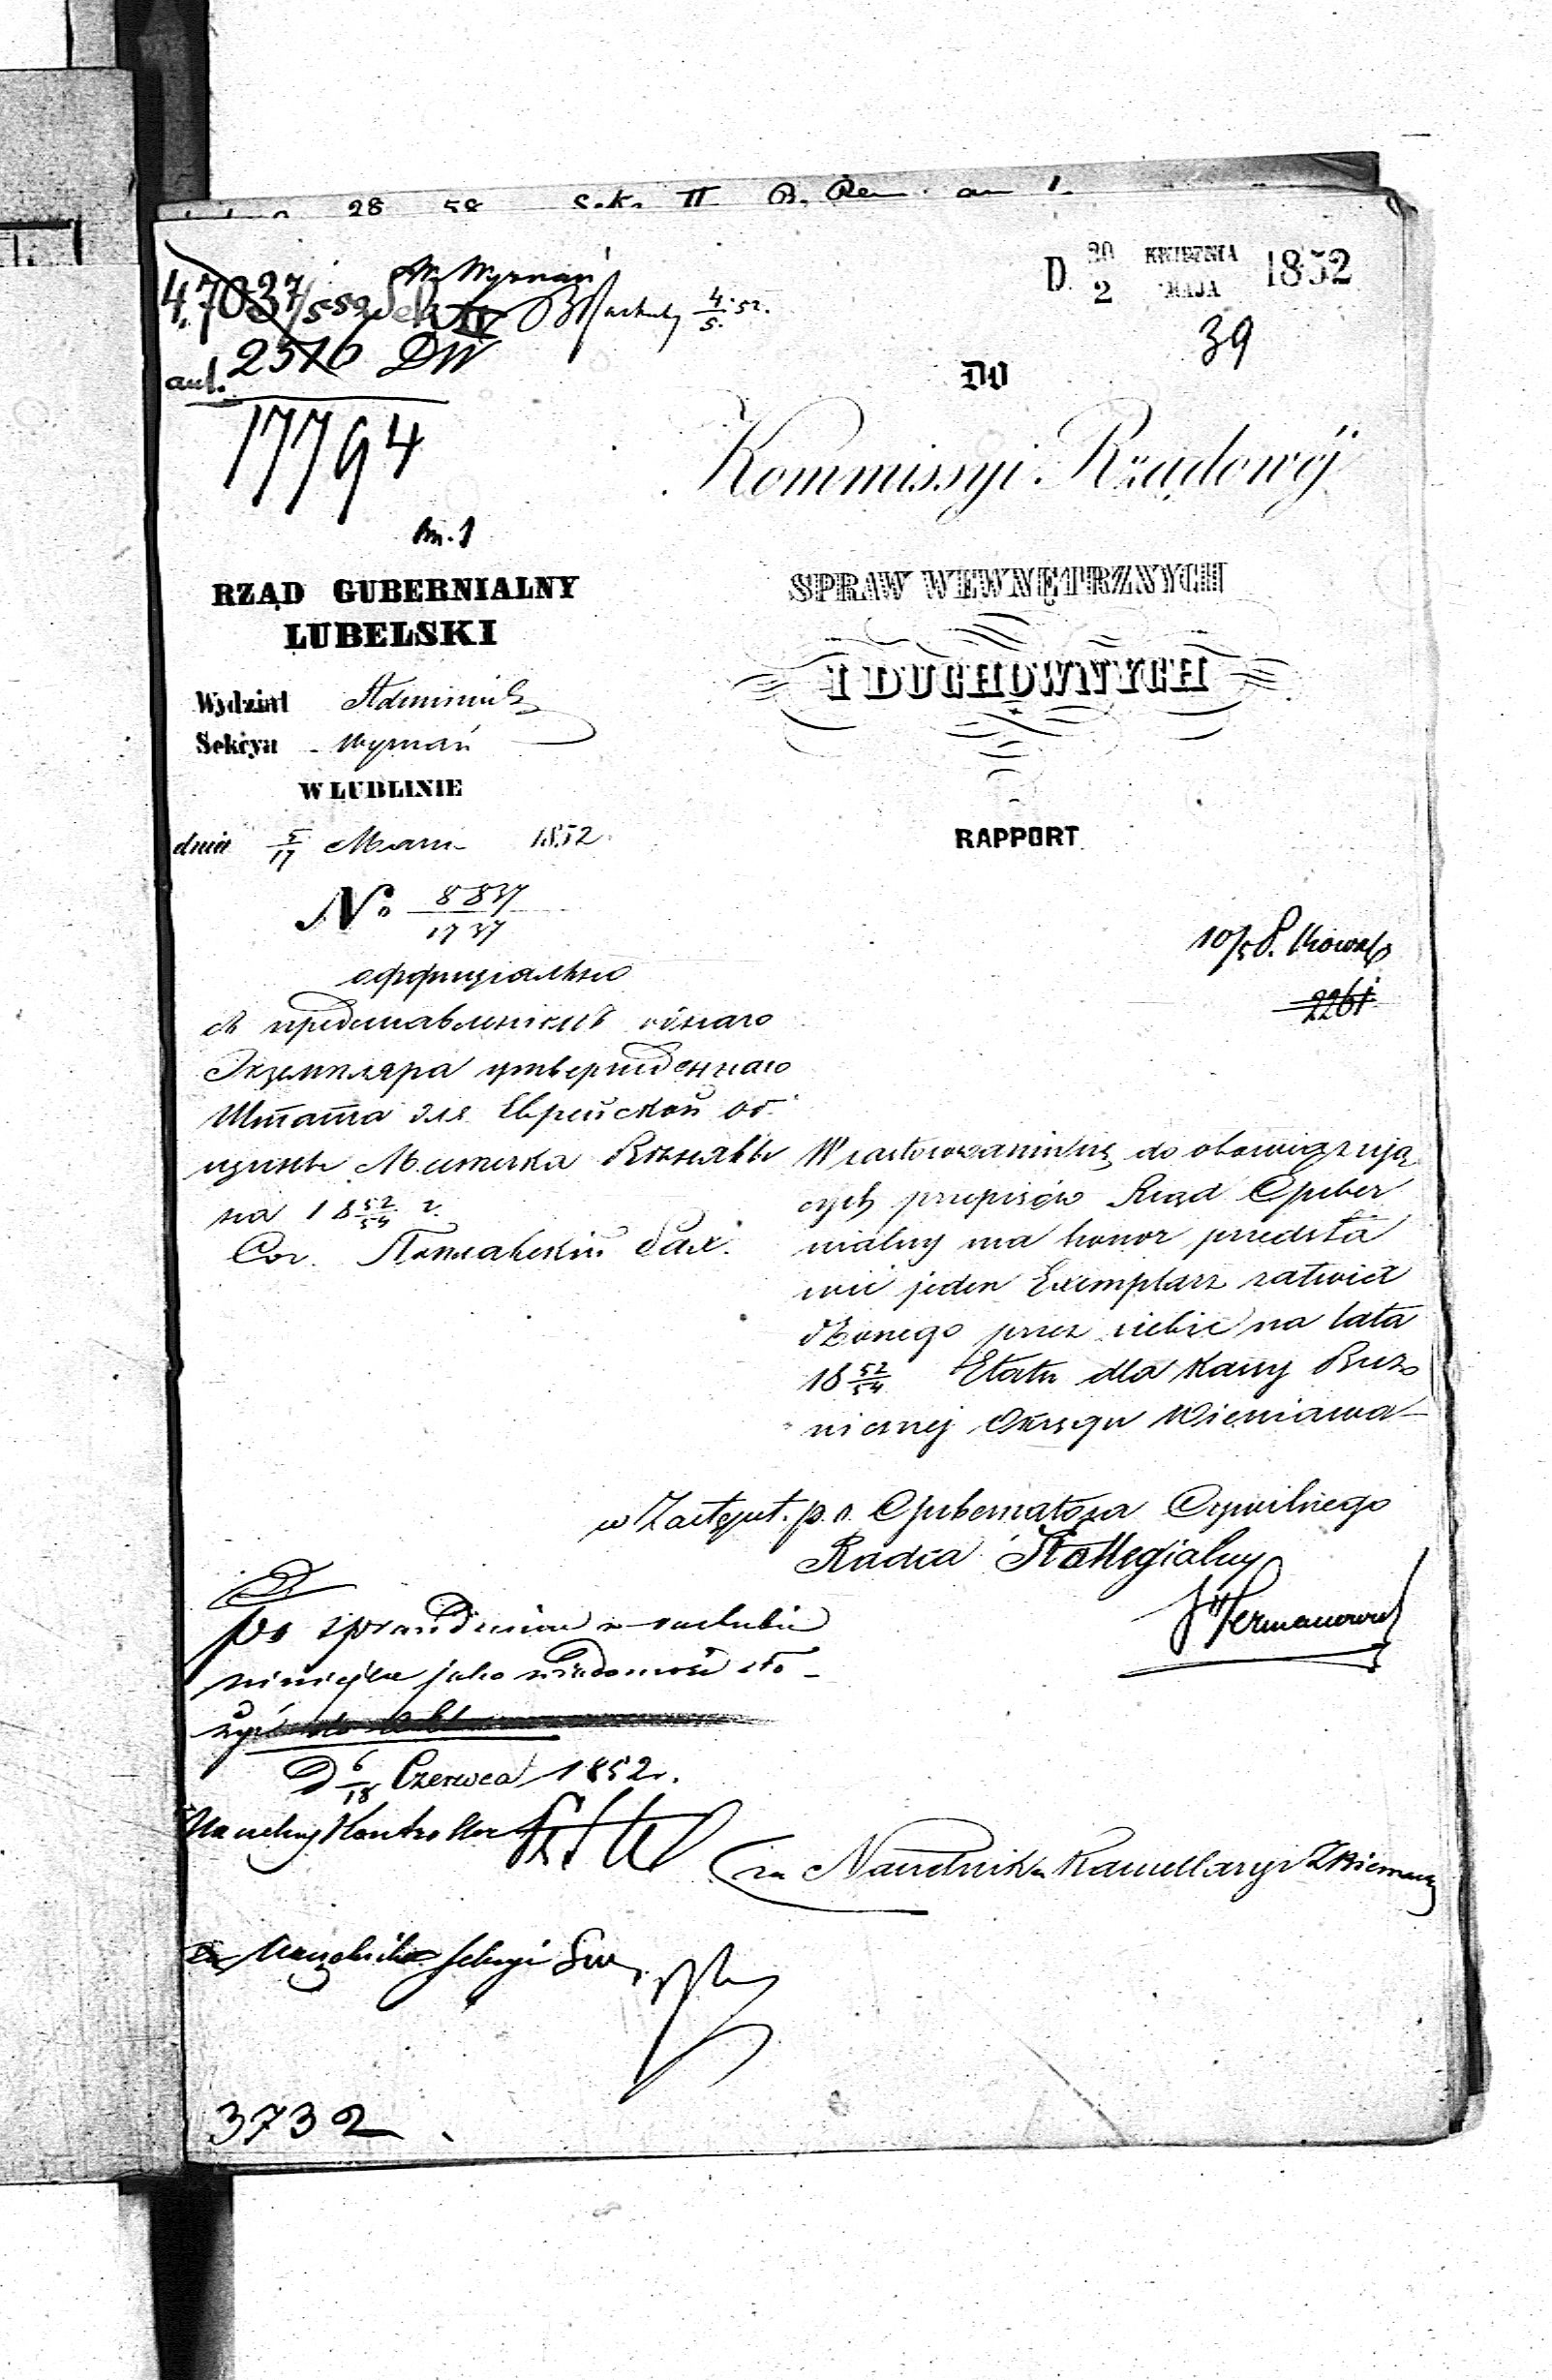 28 58 Sek. II
D. 20/2 KWIETNIA/MAJA 1852
39
W. Wyznań
47037/552 Sek IV 4/5 52.
2516 DW
ant. 17794
DO
Kommissyi Rządowéj
SPRAW WEWNĘTRZNYCH
I DUCHOWNYCH
RAPPORT
RZĄD GUBERNIALNY
LUBELSKI
Wydział Administ.
Sekcya Wyznań
W LUBLINIE
dnia 5/17 Marca 1852.
No 8837/1737
оффиціально
съ представленіемъ однаго
Экземпляра утвержденнаго
Штата для Еврейской об
щины Местечка
на 18 52/54 г.
10/5
2261
W zastosowaniu się do obowiązują
cych przepisów Rząd Guber
nialny ma honor przedsta
wić jeden Exemplarz zatwier
dzonego przez siebie na lata
18 52/54 Etatu dla Kassy Bużo
nicznej Okręgu Wieniawa
w Zastępst. p. o. Gubernatora Cywilnego
Radca Kollegialny
po sprawdzeniu w rachubie
niniejsze jako wiadomość zło-
żyć do Akt
D 6/18 Czerwca 1852 r.
Naczelny Kontroller
za Naczelnika Kancellaryi
za Naczelnika Sekcyi
3732